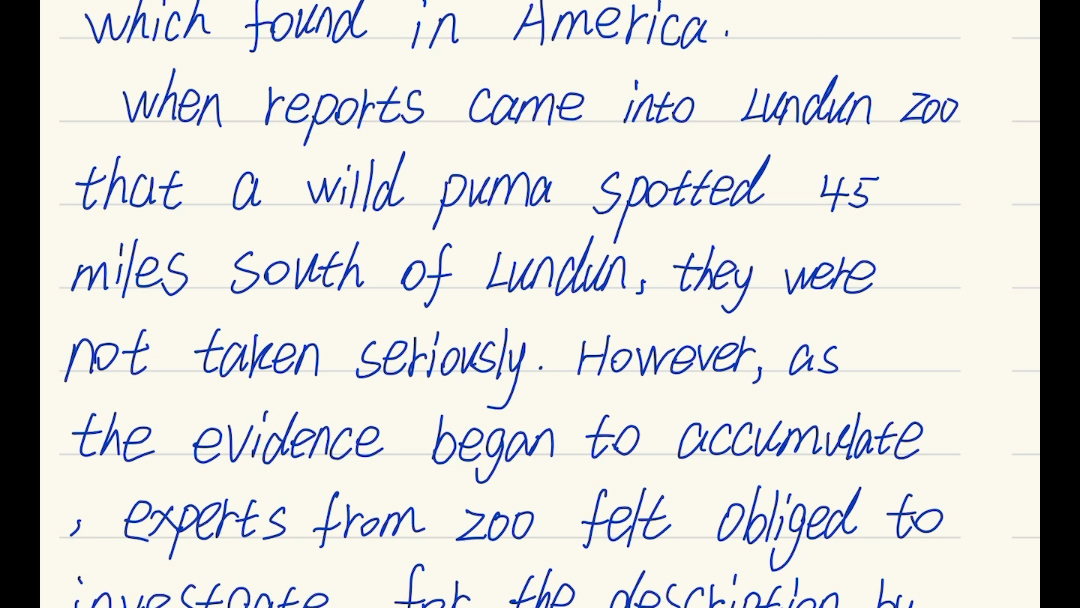 which found in America.
when reports came into Lundun zoo
that a willd puma spotted 45
miles south of Lundun, they were
not taken seriously. However, as
the evidence began to accumulate
, experts from zoo felt obliged to
investgate for the description by